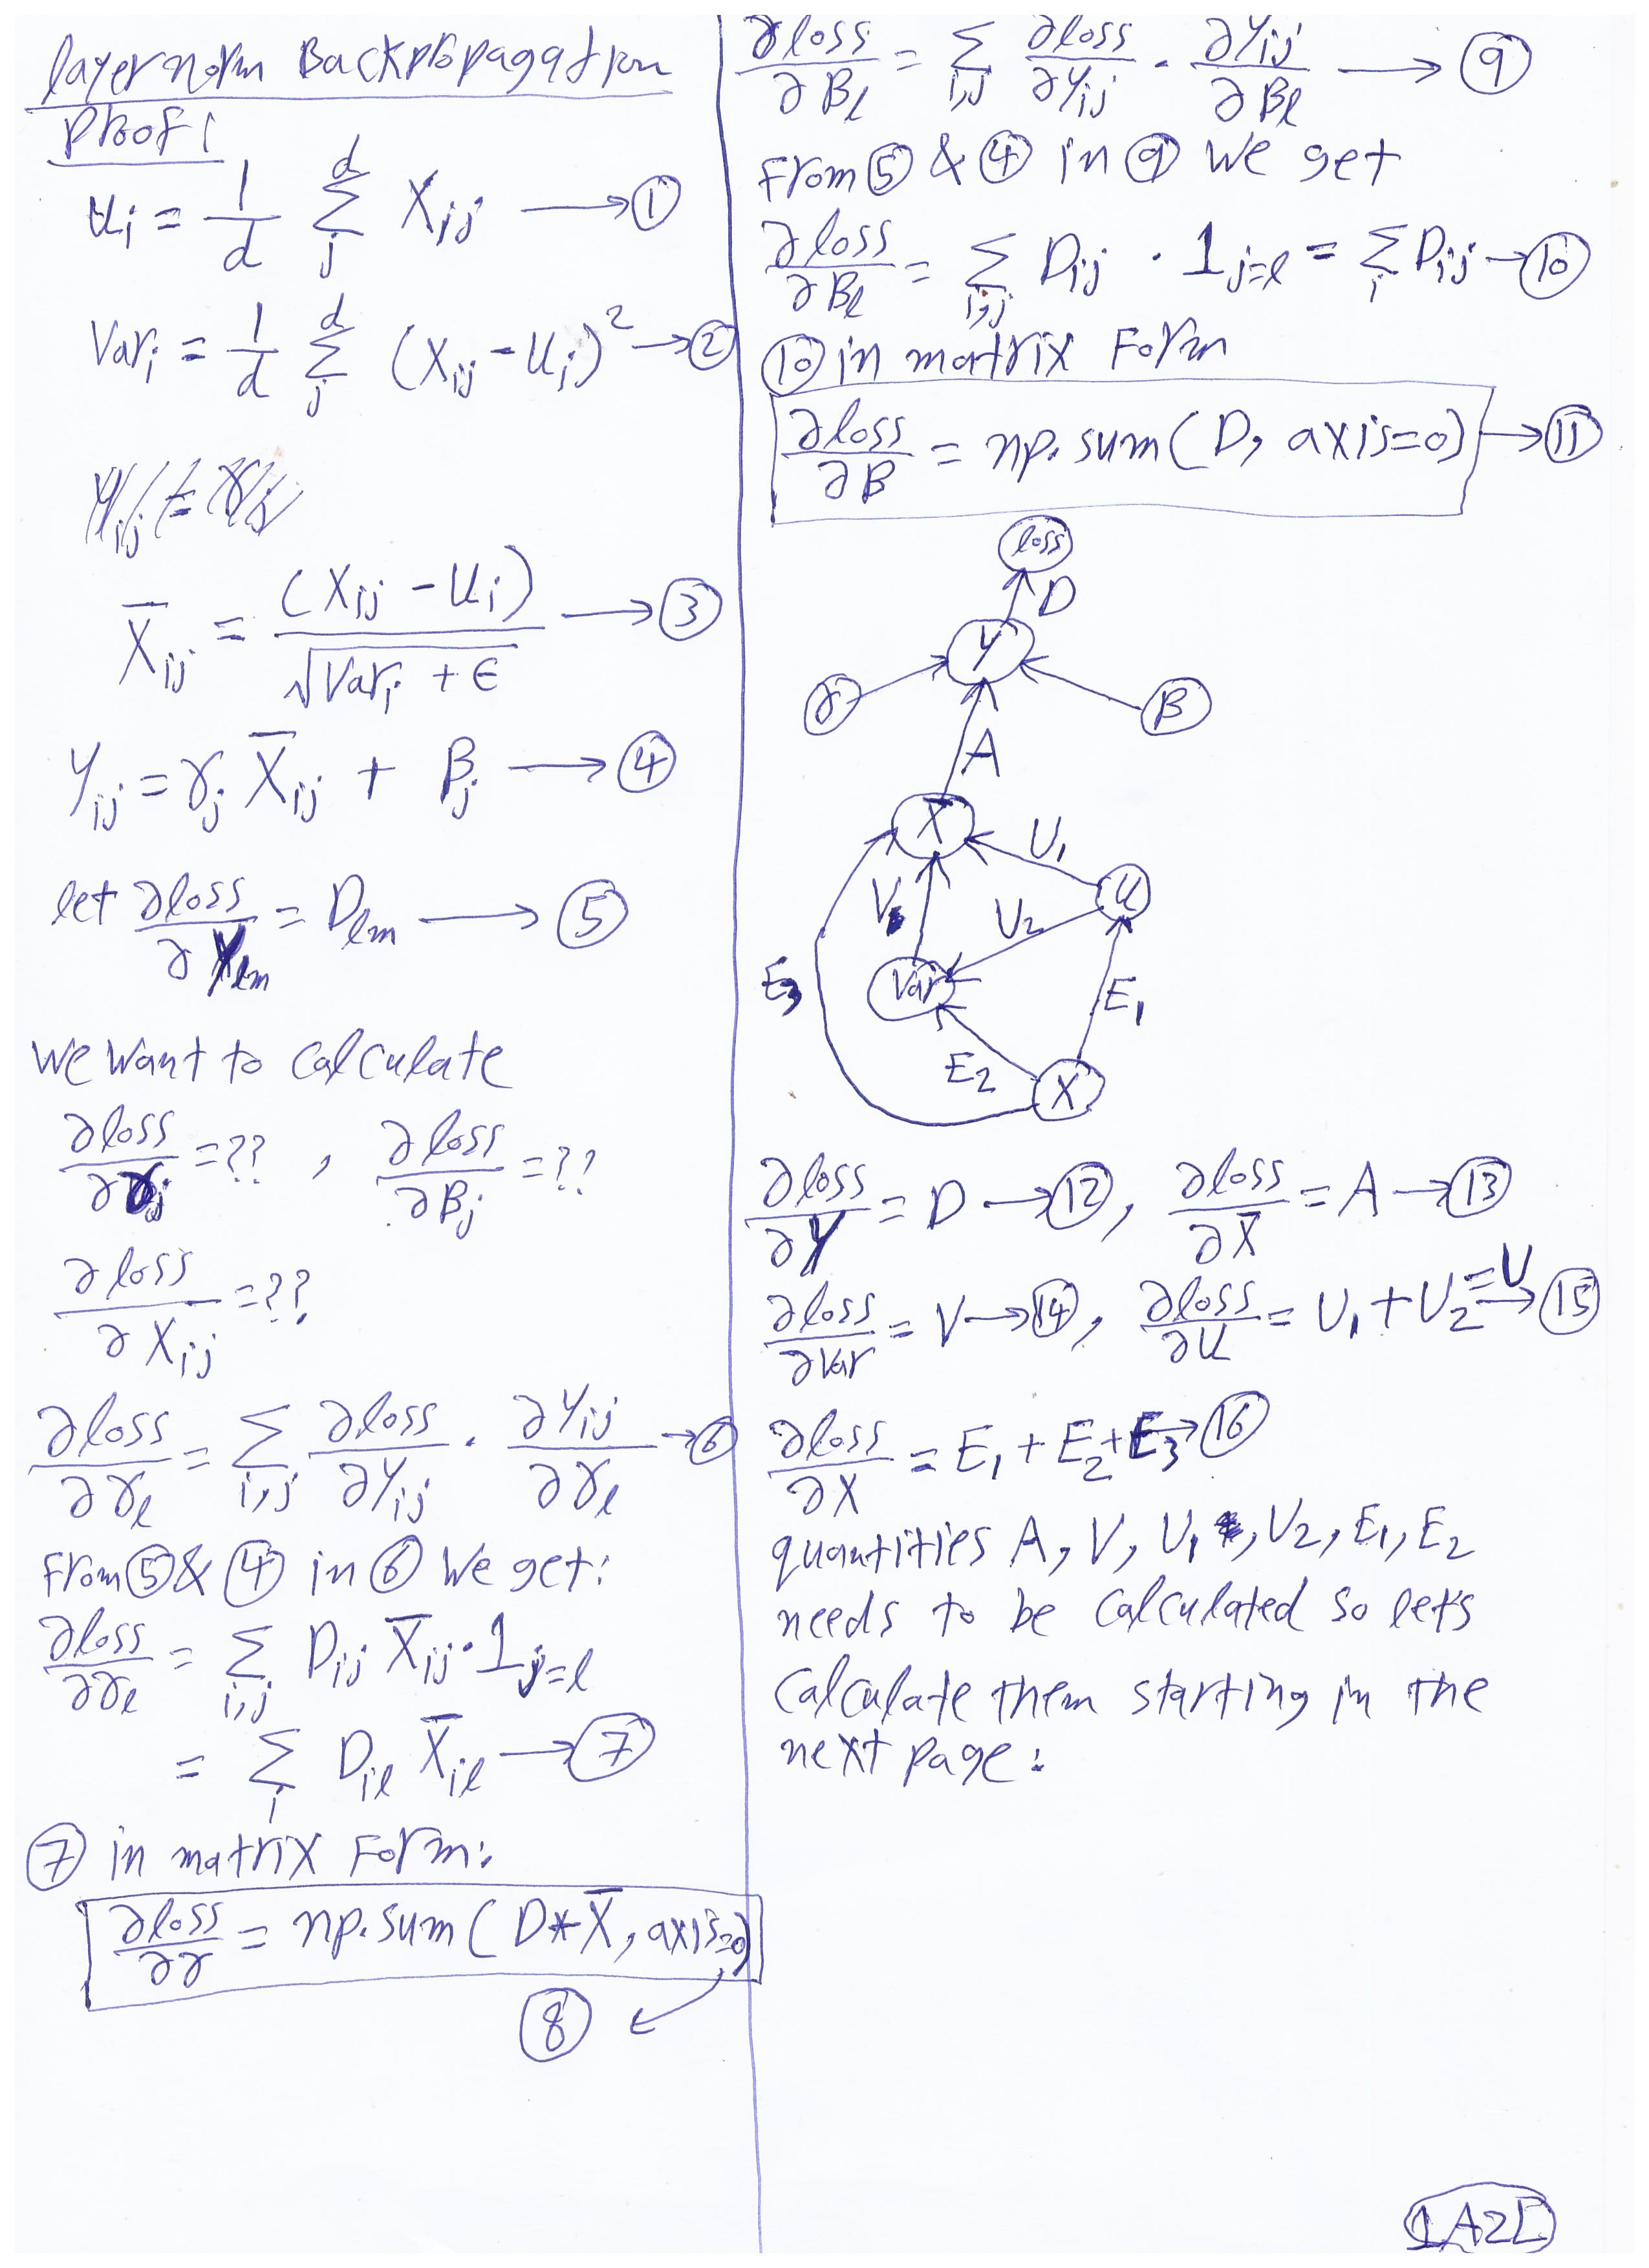 layernorm Backpropagation
proof:
u_i = 1/d Σ_j^d X_ij → ①
Var_i = 1/d Σ_j^d (X_ij - u_i)^2 → ②
X̄_ij = (X_ij - u_i) / √(Var_i + ϵ) → ③
Y_ij = γ_j X̄_ij + B_j → ④
let ∂loss/∂Y_lm = D_lm → ⑤
we want to calculate
∂loss/∂γ_j = ?? , ∂loss/∂B_j = ??
∂loss/∂X_ij = ??
∂loss/∂γ_l = Σ_i,j ∂loss/∂Y_ij · ∂Y_ij/∂γ_l → ⑥
from ⑤ & ④ in ⑥ we get:
∂loss/∂γ_l = Σ_i,j D_ij X̄_ij · 1_j=l
= Σ_i D_il X̄_il → ⑦
⑦ in matrix form:
∂loss/∂γ = np.sum(D*X̄, axis=0)
⑧
∂loss/∂B_l = Σ_i,j ∂loss/∂Y_ij · ∂Y_ij/∂B_l → ⑨
from ⑤ & ④ in ⑨ we get
∂loss/∂B_l = Σ_i,j D_ij · 1_j=l = Σ_i D_ij → ⑩
⑩ in matrix form
∂loss/∂B = np.sum(D, axis=0) → ⑪
loss
D
Y
γ B
A
X̄
U_1
u
V U_2
Var
E_3 E_1
E_2
X
∂loss/∂Y = D → ⑫, ∂loss/∂X̄ = A → ⑬
∂loss/∂Var = V → ⑭, ∂loss/∂u = U_1 + U_2 = U → ⑮
∂loss/∂X = E_1 + E_2 + E_3 → ⑯
quantities A, V, U_1, U_2, E_1, E_2
needs to be calculated so let's
calculate them starting in the
next page: